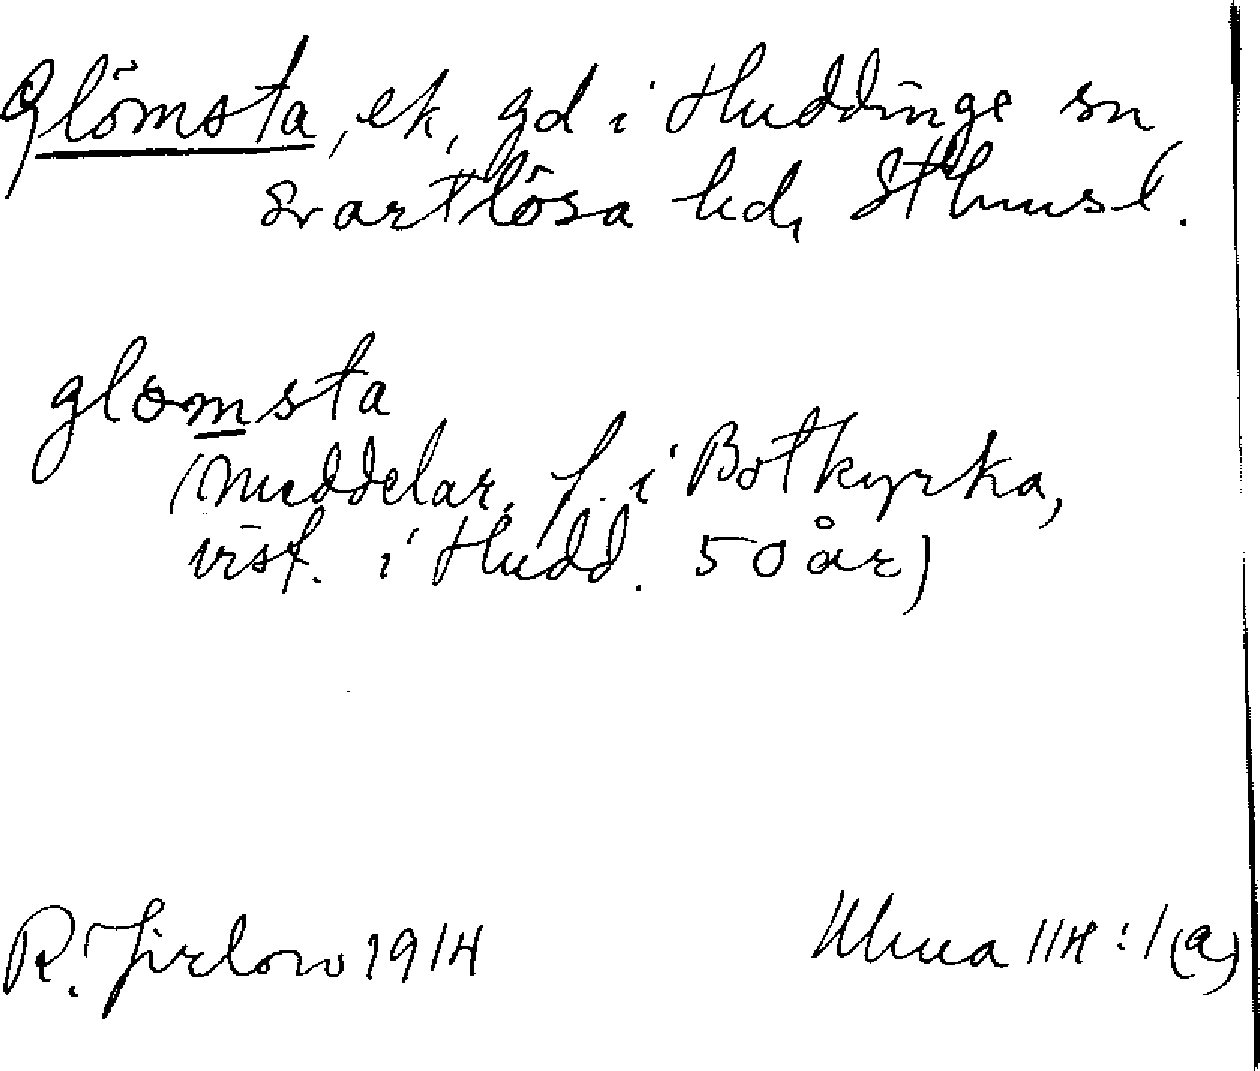 Glömsta, ek, gd i Huddinge sn
Svartlösa hd, Sthmsl.
glomsta
(meddelar. f. i Botkyrka,
vist. i Hudd. 50 år)
R. Jirlow 1914